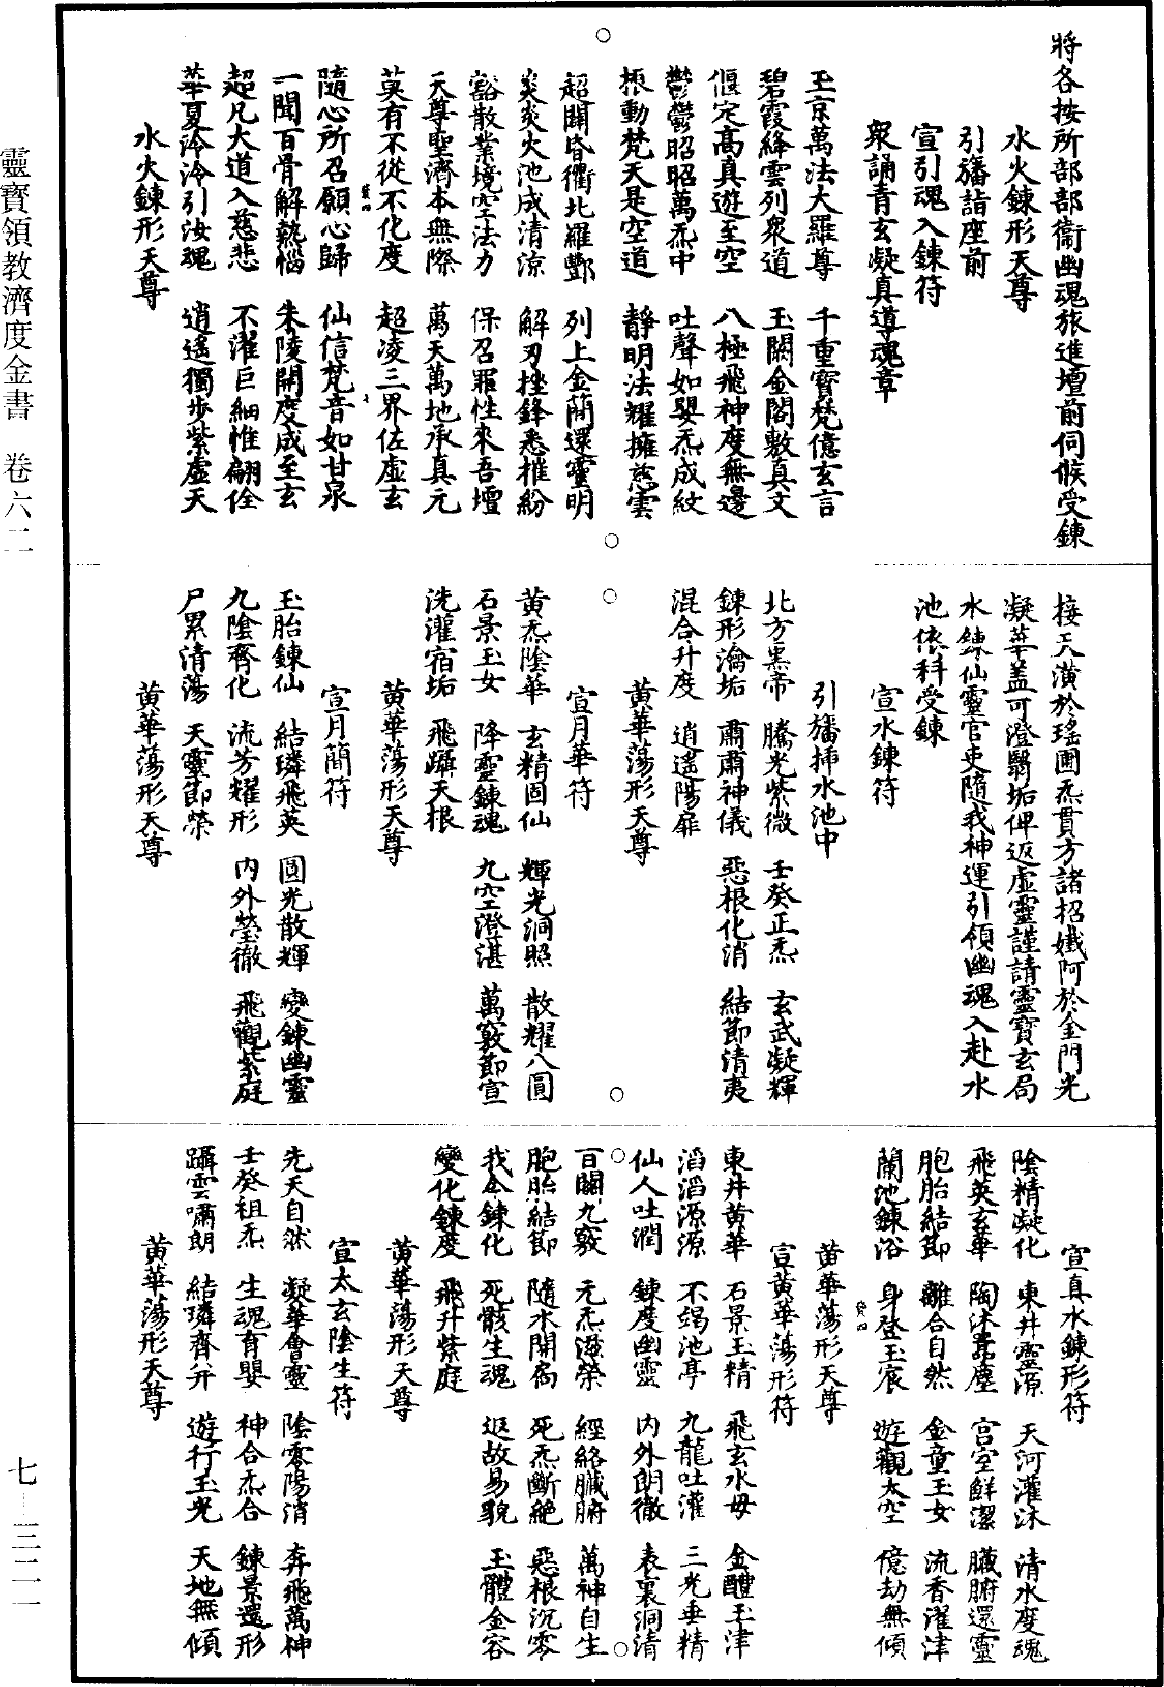 將各按所部部衞幽魂旅進壇前伺候受鍊
水火鍊形天尊
引旛詣座前
宣引魂入鍊符
衆誦青玄凝真導魂章
玉京萬法大羅尊　千重寶梵億玄言
碧霞絳雲列衆道　玉闕金閣敷真文
偃定高真遊至空　八極飛神度無邊
鬱鬱昭昭萬炁中　吐聲如嬰炁成紋
振動梵天是空道　靜明法耀擁慈雲
超開昏衢北羅酆　列上金蘭還靈明
炎炎火池成清涼　解刃挫鋒悉摧紛
豁散業境空法力　保召罪性來吾壇
天尊聖濟本無際　萬天萬地承真元
莫有不從不化度　超凌三界佐虛玄
隨心所召願心歸　仙信梵音如甘泉
一聞百骨解熱惱　朱陵開度成至玄
超凡大道入慈悲　不濯巨細惟翩佺
華夏泠泠引汝魂　逍遙獨步紫虛天
水火鍊形天尊
接天潢於瑤圃炁貫方諸招孅阿於金門光
凝華蓋可澄翳垢俾返虛靈謹請靈寶玄局
水鍊仙靈官吏隨我神運引領幽魂入赴水
池依科受鍊
宣水鍊符
引旛揷水池中
北方黑帝　騰光紫微　壬癸正炁　玄武凝輝
鍊形瀹垢　肅肅神儀　惡根化消　結節清夷
混合升度　逍遙陽扉
黃華蕩形天尊
宣月華符
黃炁陰華　玄精固仙　輝光洞照　散耀八圓
石景玉女　降靈鍊魂　九空澄湛　萬竅節宣
洗灌宿垢　飛躡天根
黃華蕩形天尊
宣月簡符
玉胎鍊仙　結璘飛英　圓光散輝　變鍊幽靈
九陰齊化　流芳耀形　內外瑩徹　飛觀紫庭
尸累清蕩　天靈節榮
黃華蕩形天尊
宣真水鍊形符
陰精凝化　東井靈源　天河灌沐　清水度魂
飛英玄華　陶沐囂塵　宮室鮮潔　臟腑還靈
胞胎結節　離合自然　金童玉女　流香濯津
蘭池鍊浴　身登玉宸　遊觀太空　億劫無傾
黃華蕩形天尊
宣黃華蕩形符
東井黃華　石景玉精　飛玄水母　金醴玉津
滔滔源源　不竭池亭　九龍吐灌　三光垂精
仙人吐潤　鍊度幽靈　內外朗徹　表裏洞清
百關九竅　元炁滋榮　經絡臟腑　萬神自生
胞胎結節　隨水開扃　死炁斷絕　惡根沉零
我今鍊化　死骸生魂　返故易貌　玉體金容
變化鍊度　飛升紫庭
黃華蕩形天尊
宣太玄陰生符
先天自然　凝華會靈　陰零陽消　奔飛萬神
壬癸祖炁　生魂育嬰　神合炁合　鍊景還形
躡雲嘯朗　結璘齊并　遊行玉光　天地無傾
黃華蕩形天尊
靈寶領教濟度金書　卷六二
七—三二一